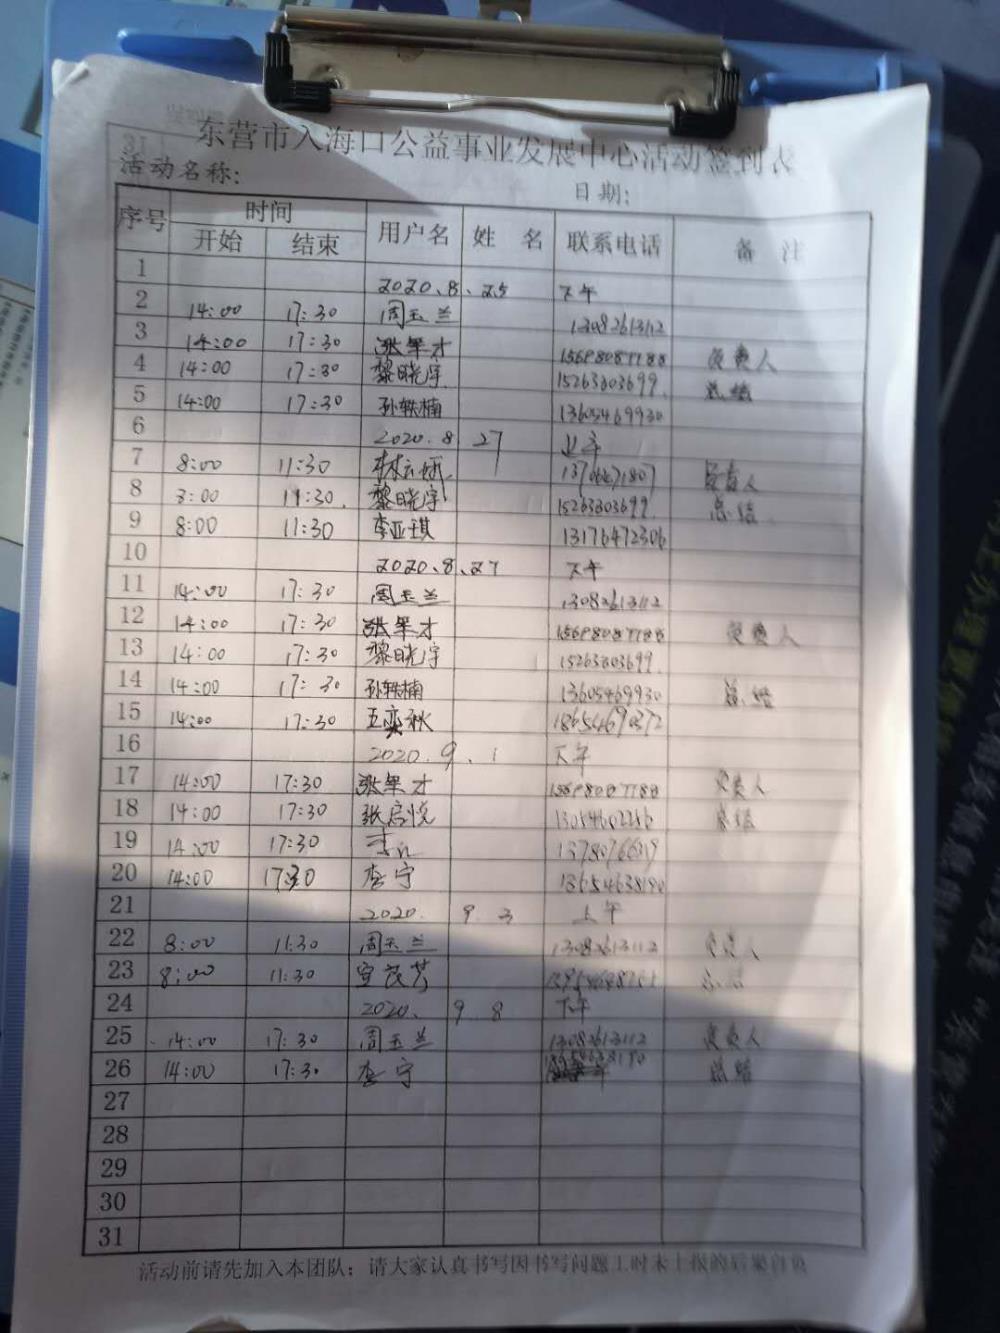 东营市入海口公益事业发展中心活动签到表
活动名称: 日期:
序号 时间 用户名 姓 名 联系电话 备 注
开始 结束
1 2020.8.25 下午
2 14:00 17:30 周玉兰 13082613112
3 14:00 17:30 张军才 负责人
4 14:00 17:30 黎晓宇 15263803699 总结
5 14:00 17:30 孙轶楠 13605469930
6 2020.8 27 上午
7 8:00 11:30 负责人
8 8:00 11:30 黎晓宇 15263803699 总结
9 8:00 11:30 李亚琪 13176472306
10 2020.8.27 下午
11 14:00 17:30 周玉兰 13082613112
12 14:00 17:30 张军才 负责人
13 14:00 17:30 黎晓宇 15263803699
14 14:00 17:30 孙轶楠 13605469930 总结
15 14:00 17:30 王奕秋 18654690372
16 2020.9.1 下午
17 14:00 17:30 张军才 负责人
18 14:00 17:30 张启悦 13054602256 总结
19 14:00 17:30
20 14:00 17:30 李宁 18654638190
21 2020. 9.3 上午
22 8:00 11:30 周玉兰 13082613112 负责人
23 8:00 11:30
24 2020. 9.8 下午
25 14:00 17:30 周玉兰 13082613112 负责人
26 14:00 17:30 李宁 18654638190 总结
27
28
29
30
31
活动前请先加入本团队；请大家认真书写因书写问题工时未上报的后果自负